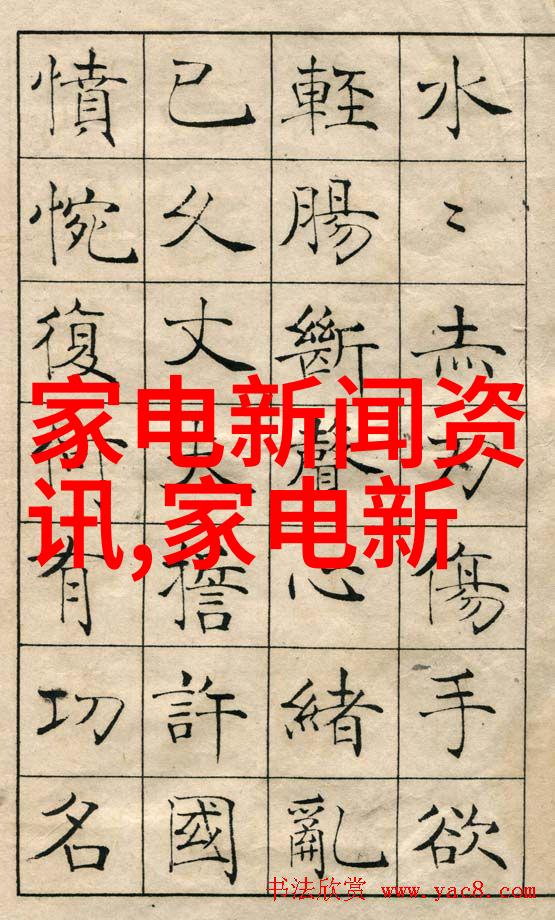 水〻赤刃傷手欲
輕腸斷聲心緒亂
已久丈夫誓許國
憤惋復何有功名
家电新闻资
讯,家电新
书法欣赏 www.yac8.com